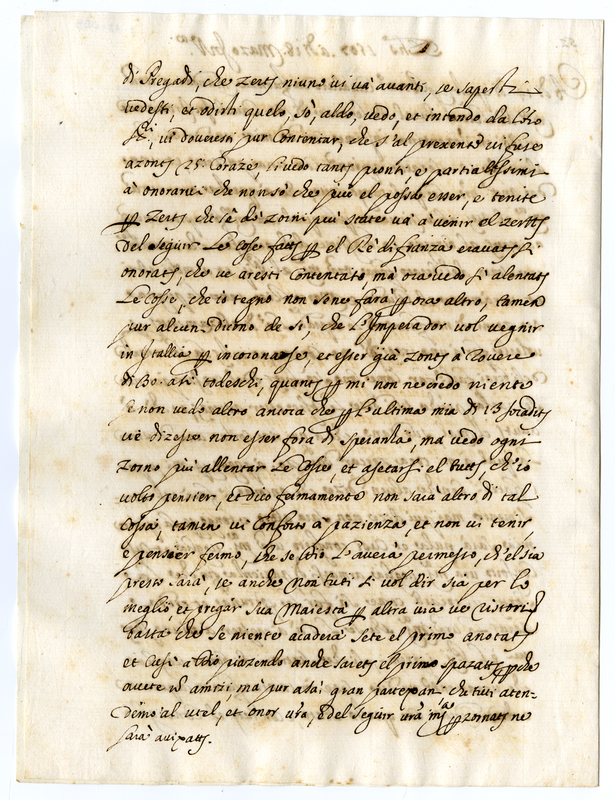 di Pregadi, che zerto niuno vi và avanti, se saperli
vedesti, et odirli quelo, sò, aldo, vedo, et intendo da loro
vi dovereti pur contentar, che s'al presente vi fuse
azonto 25. Coraze, li vedo tanto pronti e partialissimi
à onorarvi che non sò che più el possa esser, e tenite
zerto che se do zorni più state và à venir el
del seguir le cose fatto el Rè di franza eravati sì
onorato, che ve aresti contentato, mà ora vedo sì alentato
le cosse, che io tegno non sene farà ora altro, tamen
pur alcun dicono de sì, che l'Imperador vol vegnir
in Itallia incoronarse, et esser già zonto à Rovere
di Bo. ati todeschi, quanto mi non ne credo niente
se non vedo altro ancora che l'ultima mia di 13
ve dizesse non esser fora di speranza, ma vedo ogni
zorno più allentar le cosse, et asetarsi el tutto, ch'io
volto pensier, et dico fermamente non sarà altro di tal
cossa, tamen vi conforto à pazienza, et non vi tenir
e pensier fermo, che se Idio l'averà permesso, ch'el sia
presto sarà, se anche non tuti si vol dir sia per lo
meglio, et pregar sua Maiestà altra via ve ristori
basta che se niente acaderà sete el primo anotato
et cusì a Idio piazendo anche sareti el primo spazatto che
avete amizi mà pur asai gran parte che tuti aten-
demo al utel, et onor vro, del seguir vrà zornato ne
sarà avixatto.